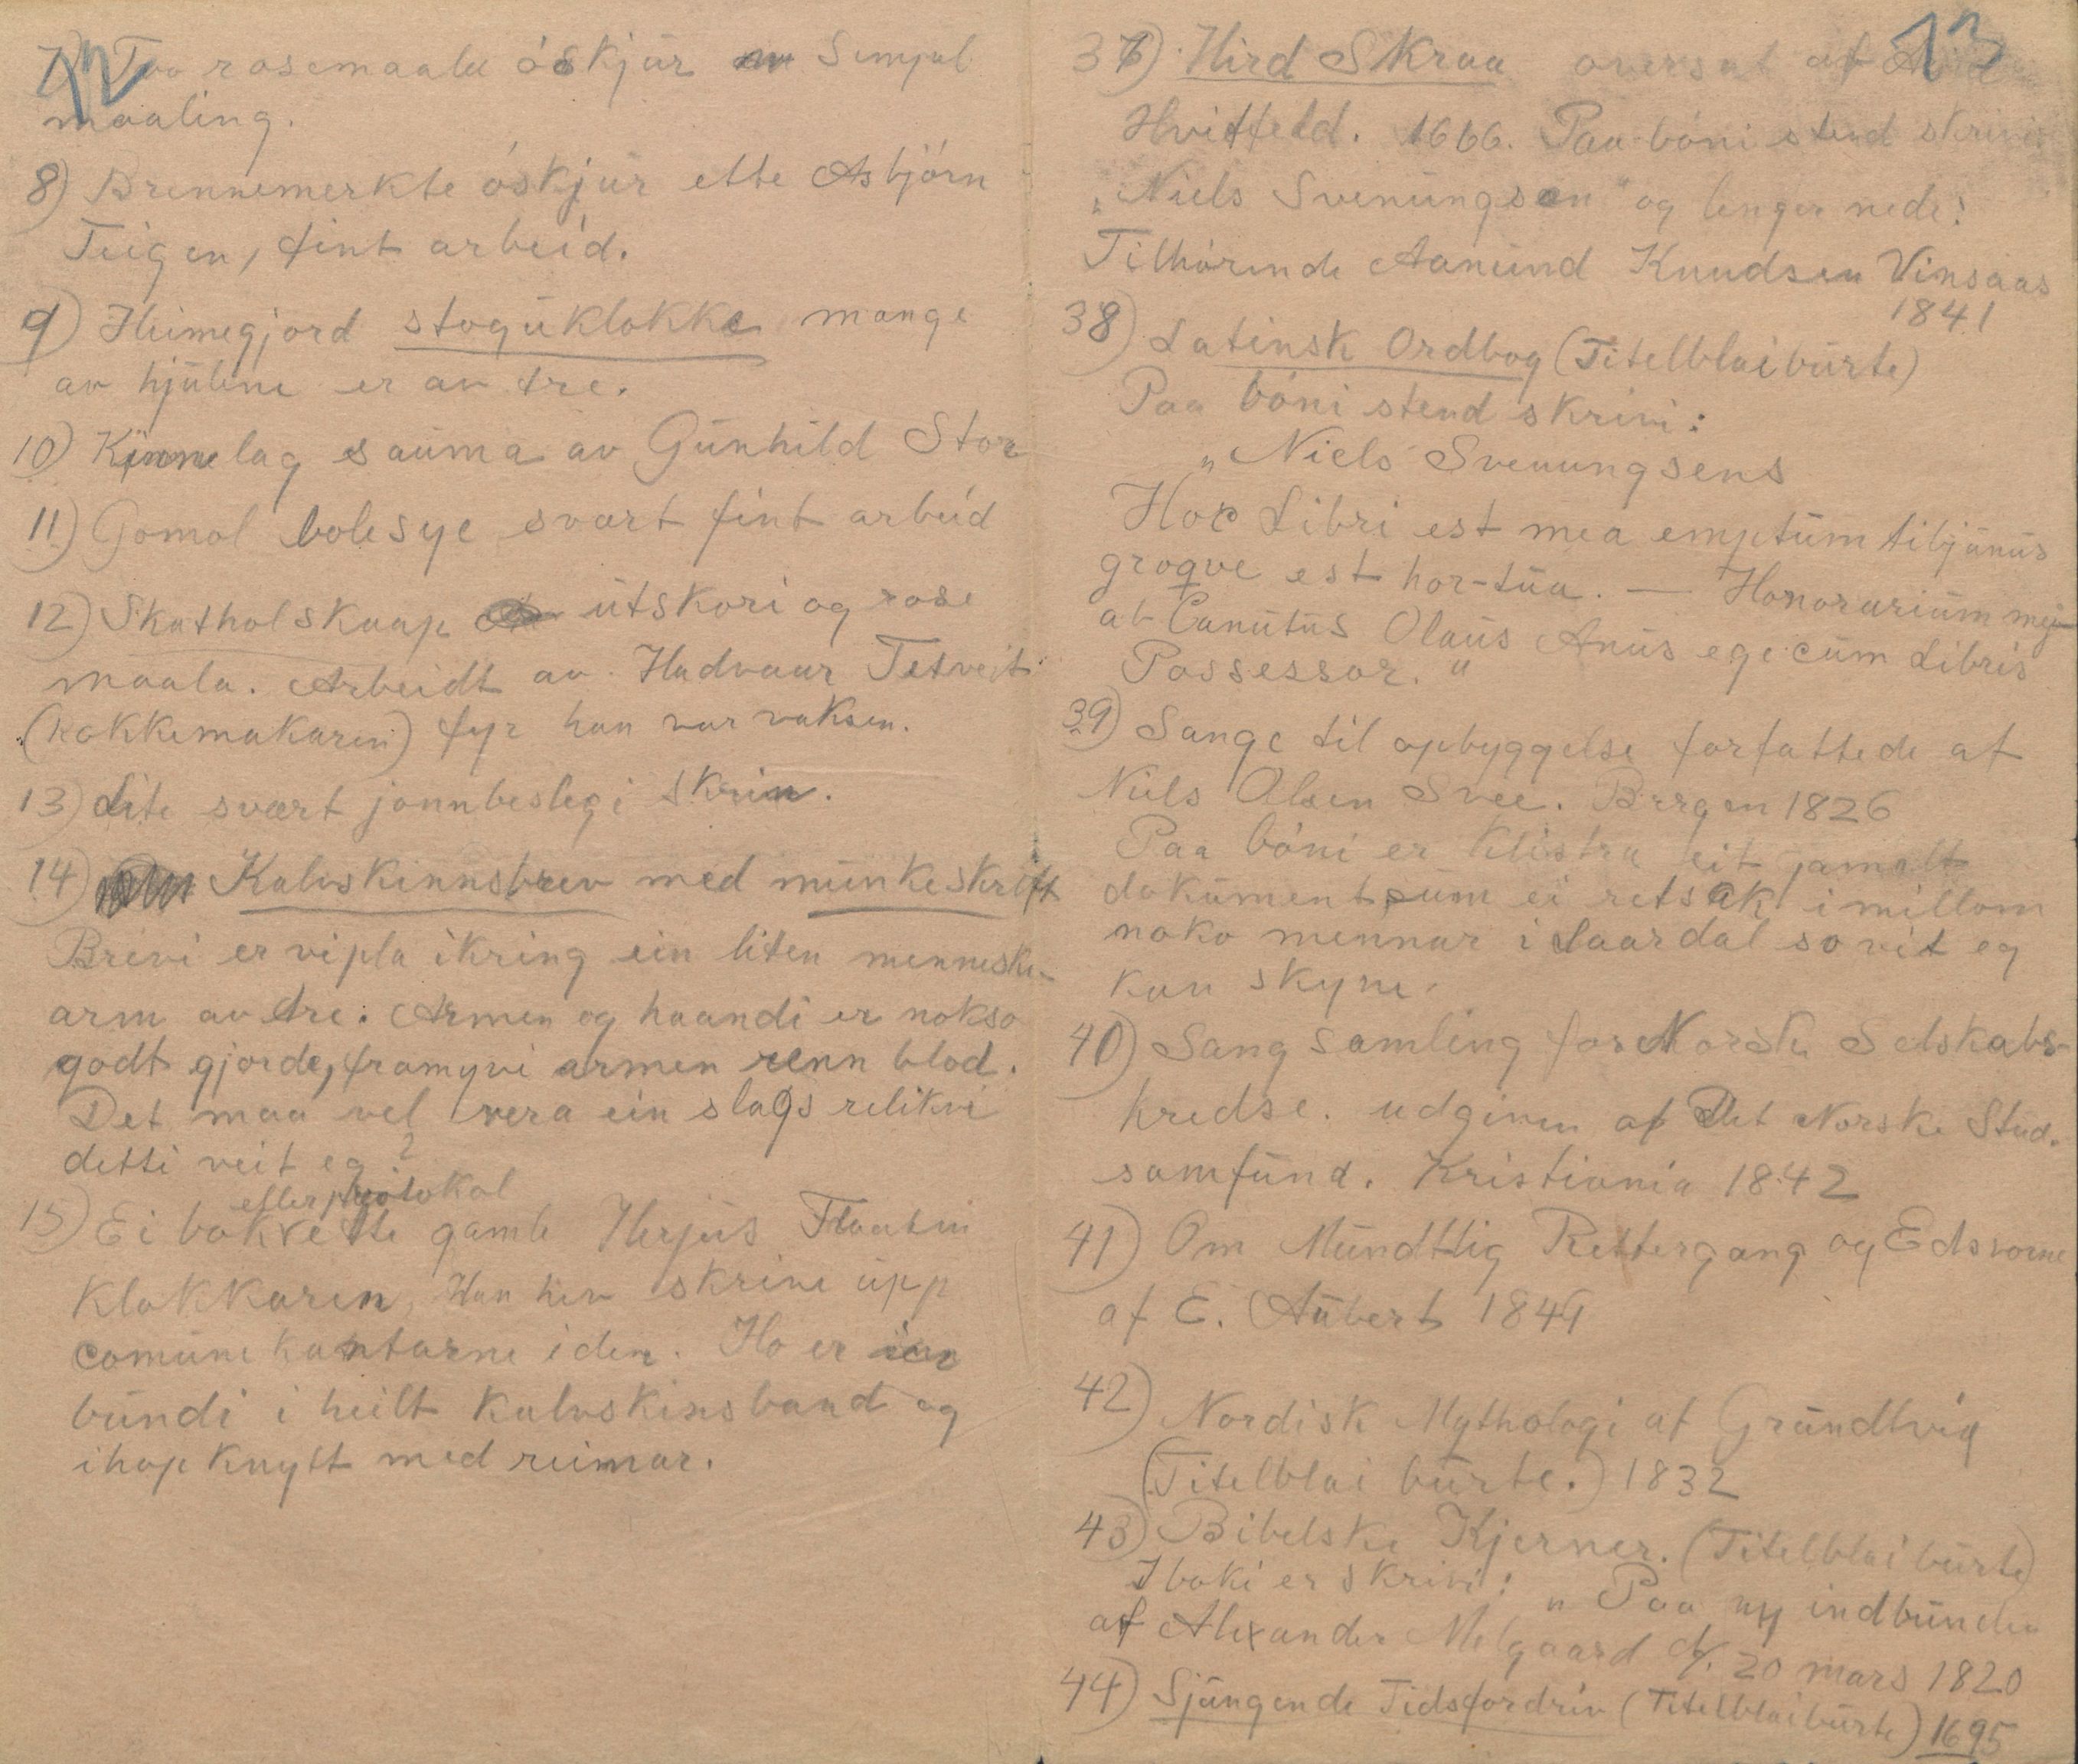 12
7) Tvo rosemaala óskjür Simpul
maaling.
8) Brennemerkte óskjür ette Asbjórn
Teigen, fint arbeid.
9) Heimegjord stogüklokke mange
av hjülene er av tre.
10) Kinnelag sauma av Günhild Stor
11) Gomol bolesye svært fint arbeid
12) Skatholskaap ütskori og rose
maala. Arbeidt av Hadvaar Tetveit
(kokkemakaren) fyr han var vaksen.
13) Lite svært jonnbeslegi skrin.
14) Kalvskinnsbrev med münkeskrift
Brevi er vipla ikring ein liten menneske-
arm av tre. Armen og haandi er nokso
godt gjorde, framyvi armen renn blod.
Det maa vel vera ein slags relikvi
detti veit eg?
efter protokol
15) Ei bok ette gamle Herjüs Flaatin
Klokkaren, Han hev skrive üpp
comüne kantarne i den. Ho er inn
bündi i heilt kalvskinsband og
ihop knytt med reimar.
13
37) Hird Skraa oversat af
Hvitfeld. 1666. Paa bóni stend skrivi
„Niels Svenüngsen" og lenger nede:
Tilhórende Aanünd Knudsen Vinsaas
1841
38) Latinsk Ordbog (Titelblai bürte)
Paa bóni stend skrivi:
„Niels Sveuungsens
Hoc Libri est mea emptüm tibjünüs
groqve est hor-tüa. — Honorariüm
at Canütüs Olaüs Anüs ege cüm Libris
Possessor."
39) Sange til opbyggelse forfattede af
Niels Olsen Svee. Bergen 1826
Paa bóni er klistra eit jamalt
doküment süm ei retsak imillom
noko mennar i Laardal so vit eg
kan skyne.
40) Sang samling for Norske Selskabs-
kredse. udgiven af Det Norske Stud.
samfünd. Kristiania 1842
41) Om Mündtlig Rettergang og Edsvorne
af E. Aübert 1849
42) Nordisk Mythologi af Gründtvig
(Titelblai bürte.) 1832
43) Bibelske Kjerner. (Titelblai bürte)
I boki er skrivi: „Paa ny indbünden
af Alexander Melgaard d. 20 mars 1820
44) Sjüngende Tidsfordriv (Titelblai bürte) 1695